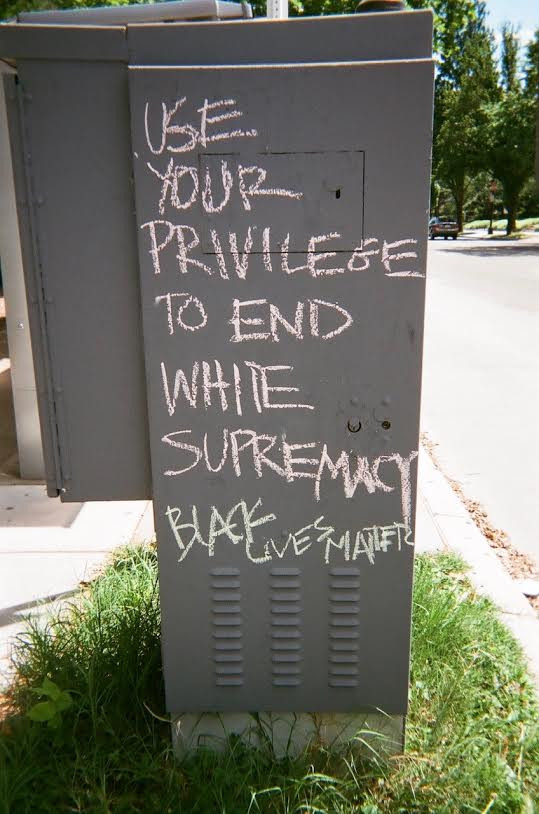 USE
YOUR
PRIVILEGE
TO END
WHITE
SUPREMACY
BLACK LIVES MATTER